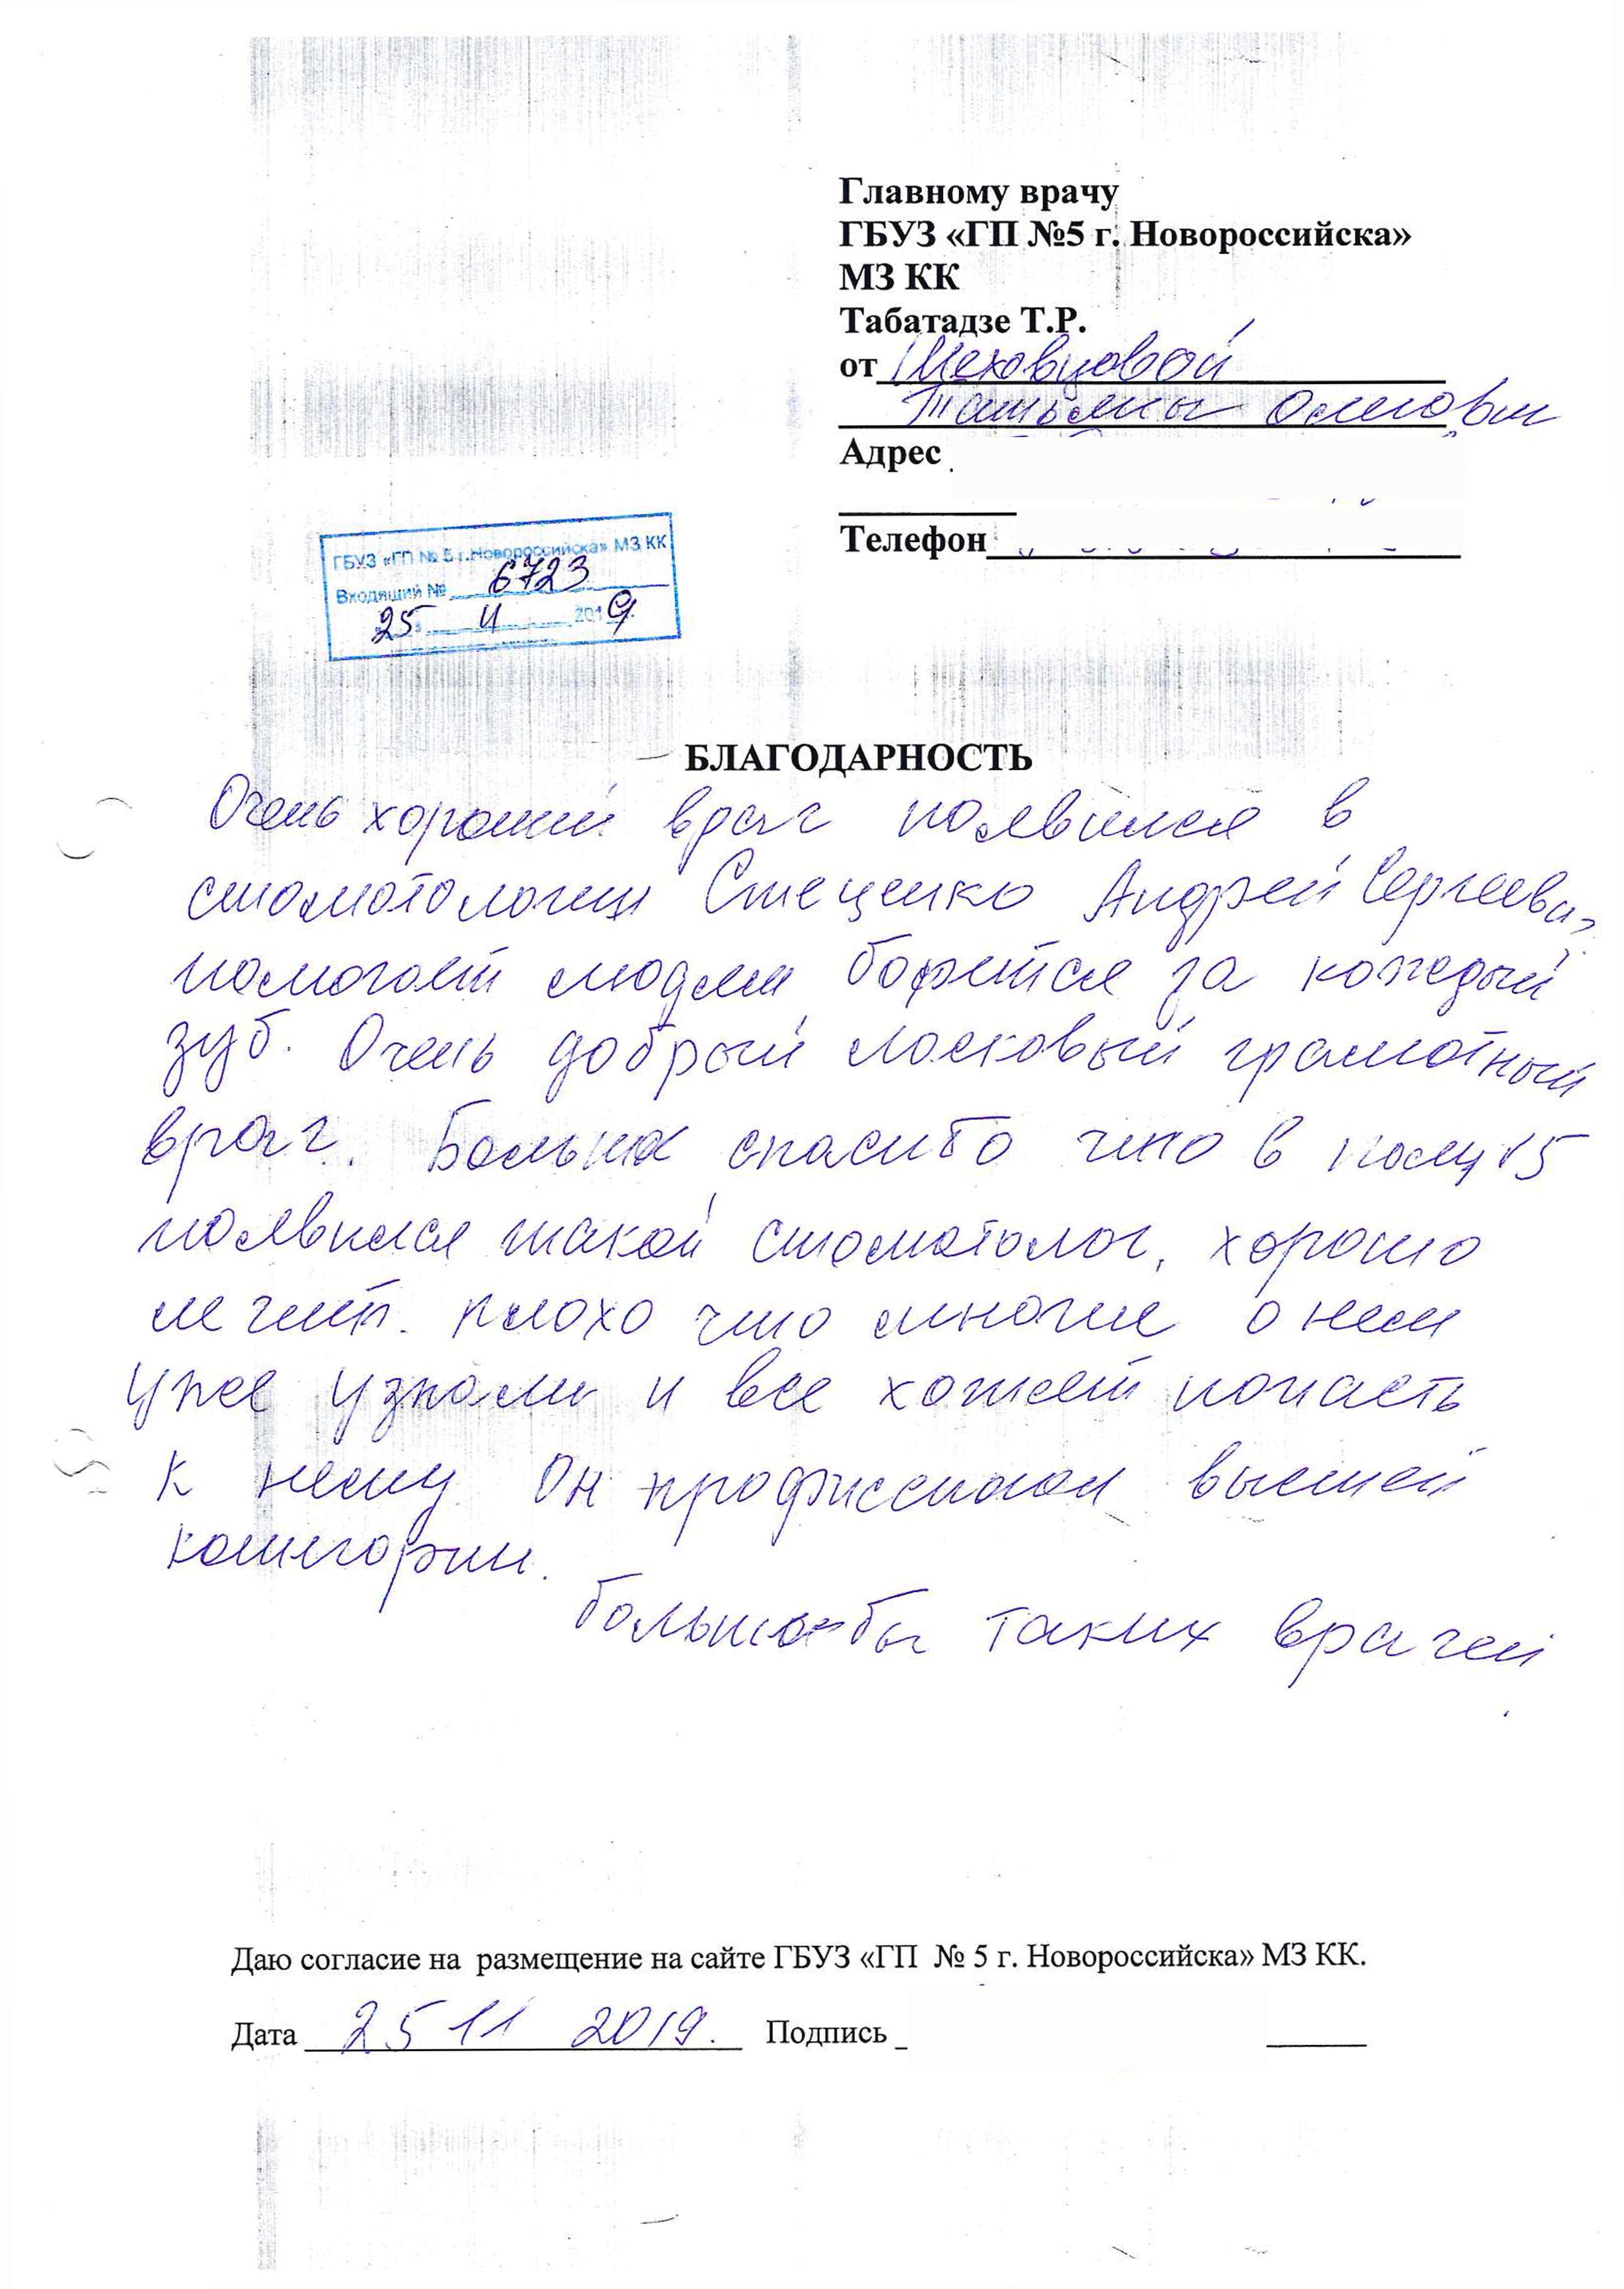 Главному врачу
ГБУЗ «ГП №5 г. Новороссийска»
МЗ КК
Табатадзе Т.Р.
от Шеховцовой
Татьяны Олеговн
Адрес
Телефон
ГБУЗ «ГП № 5 г. Новороссийска» МЗ КК
Входящий № 6723
25 11 2019
БЛАГОДАРНОСТЬ
Очень хороший врач появился в
стоматологии Стеценко Андрей Сергееви
помогает людям борется за каждый
зуб. Очень добрый ласковый грамотный
врач. Больша спасибо что в 5
появился такой стоматолог, хорошо
лечит. плохо что многие о нем
уже узнали и все хотят попасть
к нему. Он профиссионал высшей
категории.
больше бы таких врачей
Даю согласие на размещение на сайте ГБУЗ «ГП № 5 г. Новороссийска» МЗ КК.
Дата 25 11 2019. Подпись